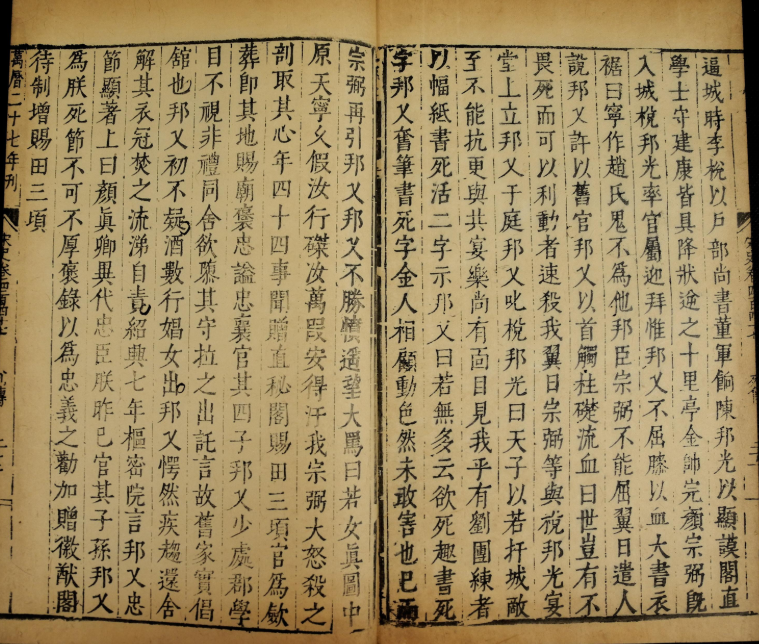 逼城時李梲以戶部尚書董軍餉陳邦光以顯謨閣直
學士守建康皆具降狀逆之十里亭金帥完顏宗弼旣
入城梲邦光率官屬迎拜惟邦乂不屈膝以血大書衣
裾曰寧作趙氏鬼不爲他邦臣宗弼不能屈翼日遣人
說邦乂許以舊官邦乂以首觸柱礎流血曰世豈有不
畏死而可以利動者速殺我翼日宗弼等與梲邦光宴
堂上立邦乂于庭邦乂叱梲邦光曰天子以若扞城敵
至不能抗更與共宴樂尚有面目見我乎有劉團練者
以幅紙書死活二字示邦乂曰若無多云欲死趣書死
字邦乂奮筆書死字金人相顧動色然未敢害也已而
宗弼再引邦乂邦乂不勝憤遥望大罵曰若女眞圖中
原天寧久假汝行磔汝萬段安得汙我宗弼大怒殺之
剖取其心年四十四事聞贈直秘閣賜田三頃官爲斂
葬卽其地賜廟褒忠謚忠襄官其四子邦乂少處郡學
目不視非禮同舍欲隳其守拉之出託言故舊家實倡
舘也邦乂初不疑酒數行娼女出邦乂愕然疾趨還舍
解其衣冠焚之流涕自責紹興七年樞密院言邦乂忠
節顯著上曰顏眞卿異代忠臣朕昨已官其子孫邦乂
爲朕死節不可不厚褒錄以爲忠義之勸加贈徽猷閣
待制增賜田三頃
萬曆二十七年刊